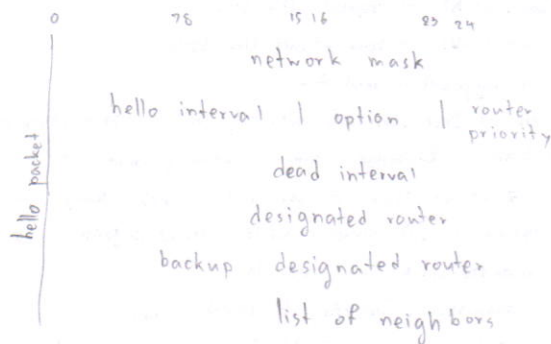 0 78 15 16 23 24
network mask
hello interval | option | router priority
dead interval
designated router
backup designated router
list of neighbors
hello packet